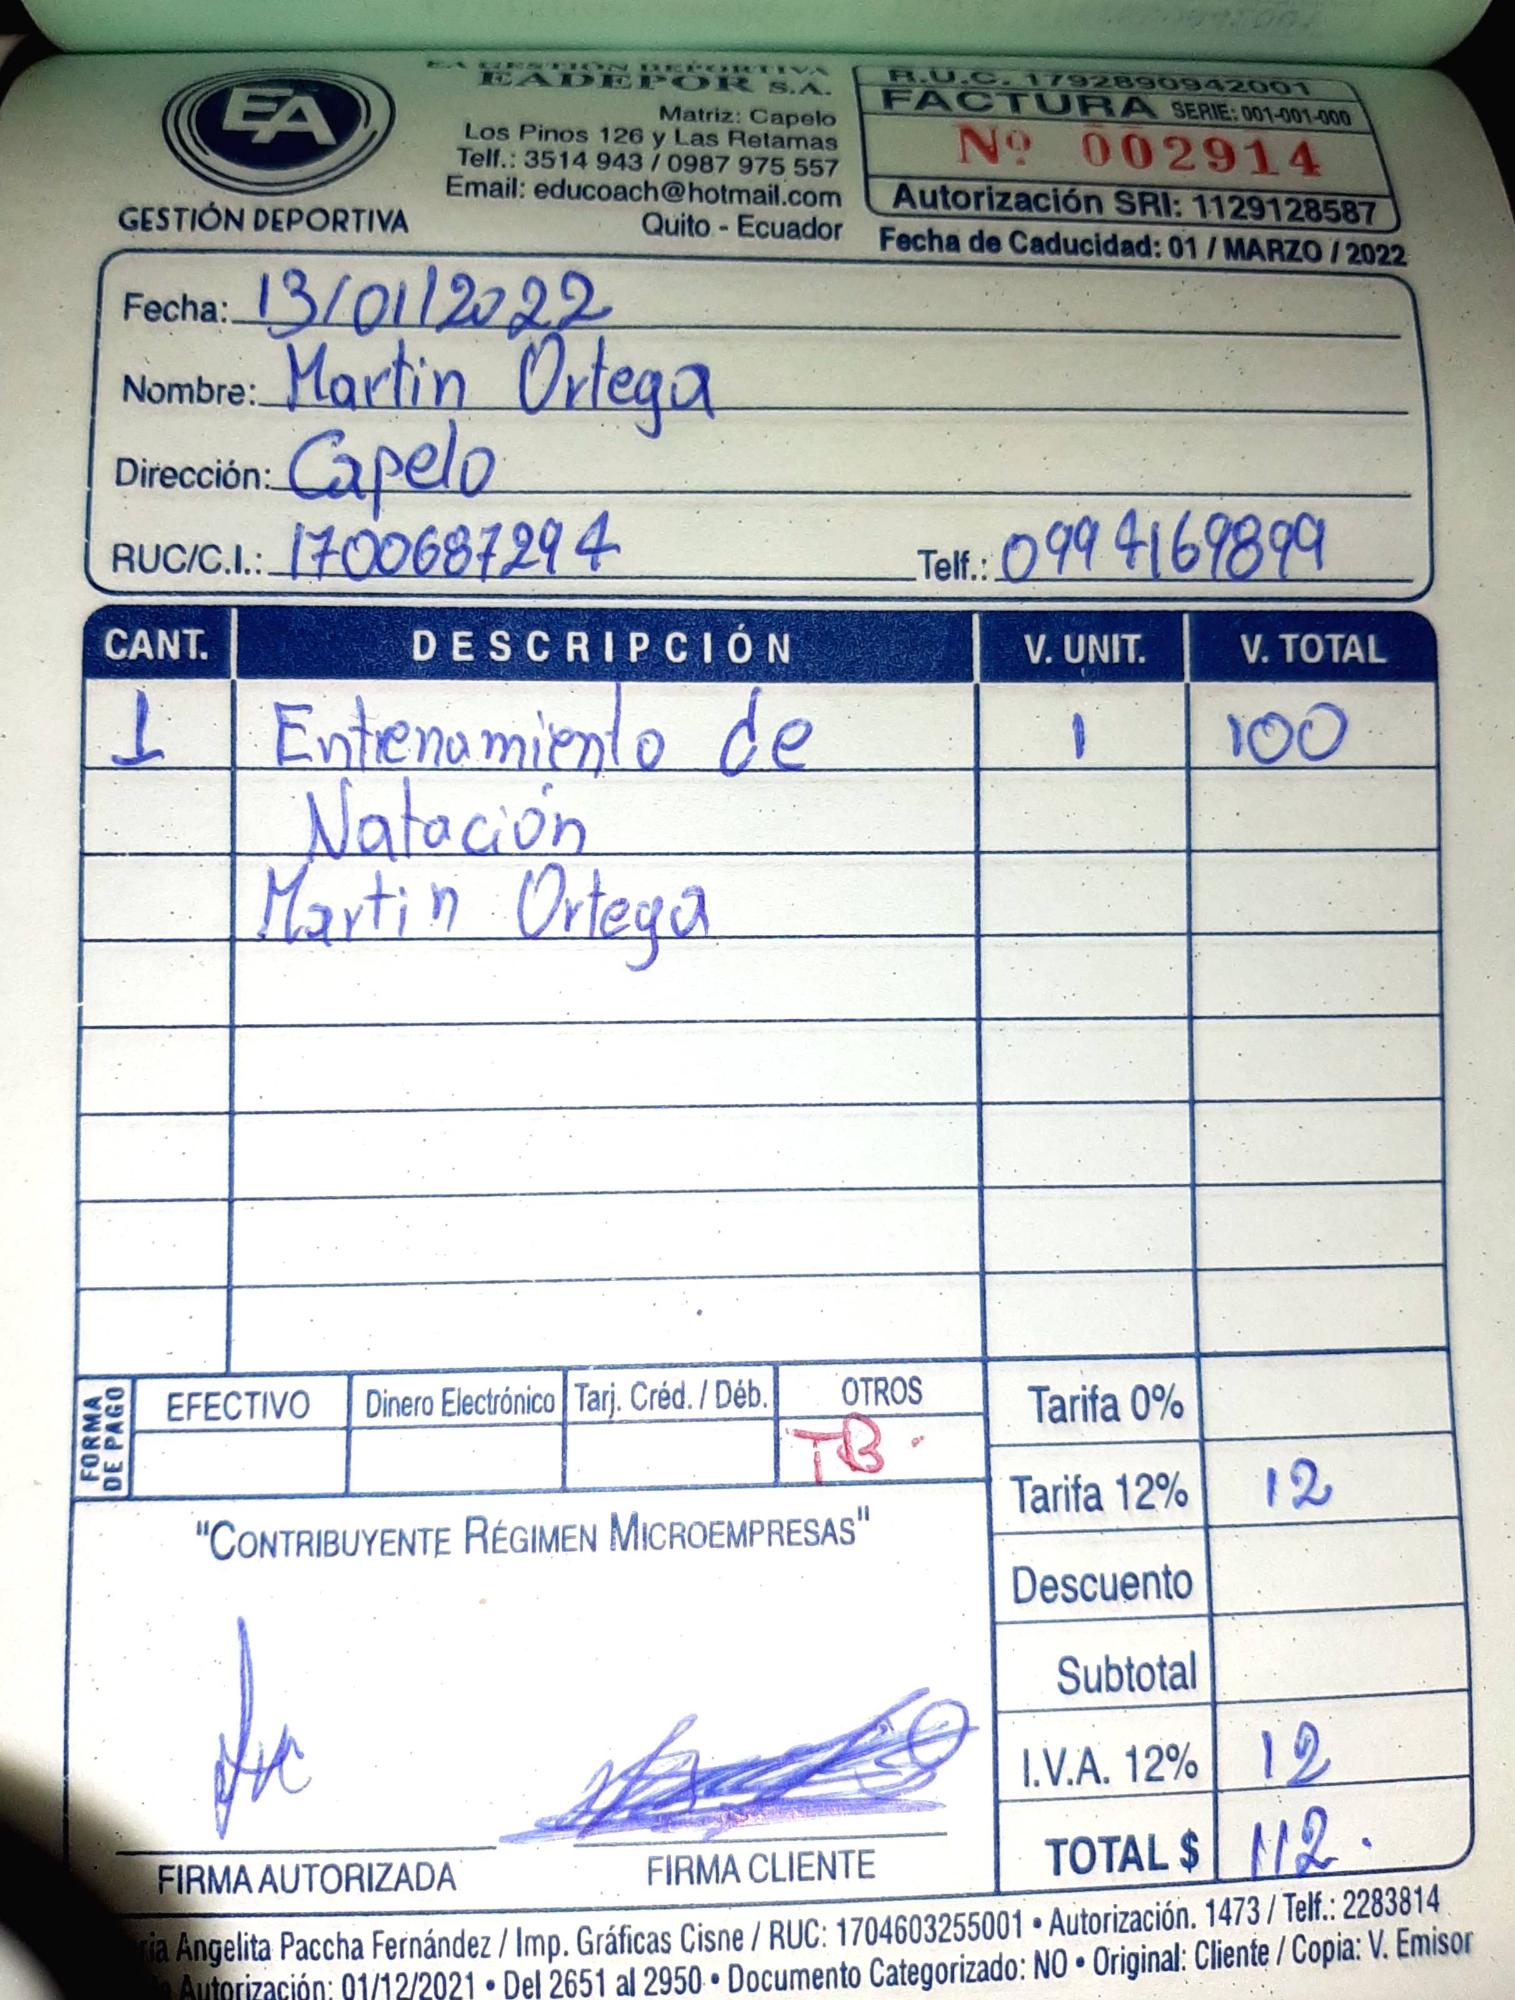 EA
GESTIÓN DEPORTIVA
EA GESTIÓN DEPORTIVA
EADEPOR S.A.
Matriz: Capelo
Los Pinos 126 y Las Retamas
Telf.: 3514 943 / 0987 975 557
Email: educoach@hotmail.com
Quito - Ecuador
R.U.C. 1792890942001
FACTURA SERIE: 001-001-000
Nº 002914
Autorización SRI: 1129128587
Fecha de Caducidad: 01 / MARZO / 2022
Fecha: 13/01/2022
Nombre: Martin Ortega
Dirección: Capelo
RUC/C.I.: 1700687294 Telf.: 0994169899
CANT. DESCRIPCIÓN V. UNIT. V. TOTAL
1 Entrenamiento de 1 100
Natación
Martin Ortega
FORMA DE PAGO
EFECTIVO Dinero Electrónico Tarj. Créd. / Déb. OTROS
TB.
Tarifa 0%
Tarifa 12% 12
Descuento
Subtotal
I.V.A. 12% 12
TOTAL $ 112.
"CONTRIBUYENTE RÉGIMEN MICROEMPRESAS"
FIRMA AUTORIZADA FIRMA CLIENTE
Angelita Paccha Fernández / Imp. Gráficas Cisne / RUC: 1704603255001 • Autorización. 1473 / Telf.: 2283814
Autorización: 01/12/2021 • Del 2651 al 2950 • Documento Categorizado: NO • Original: Cliente / Copia: V. Emisor